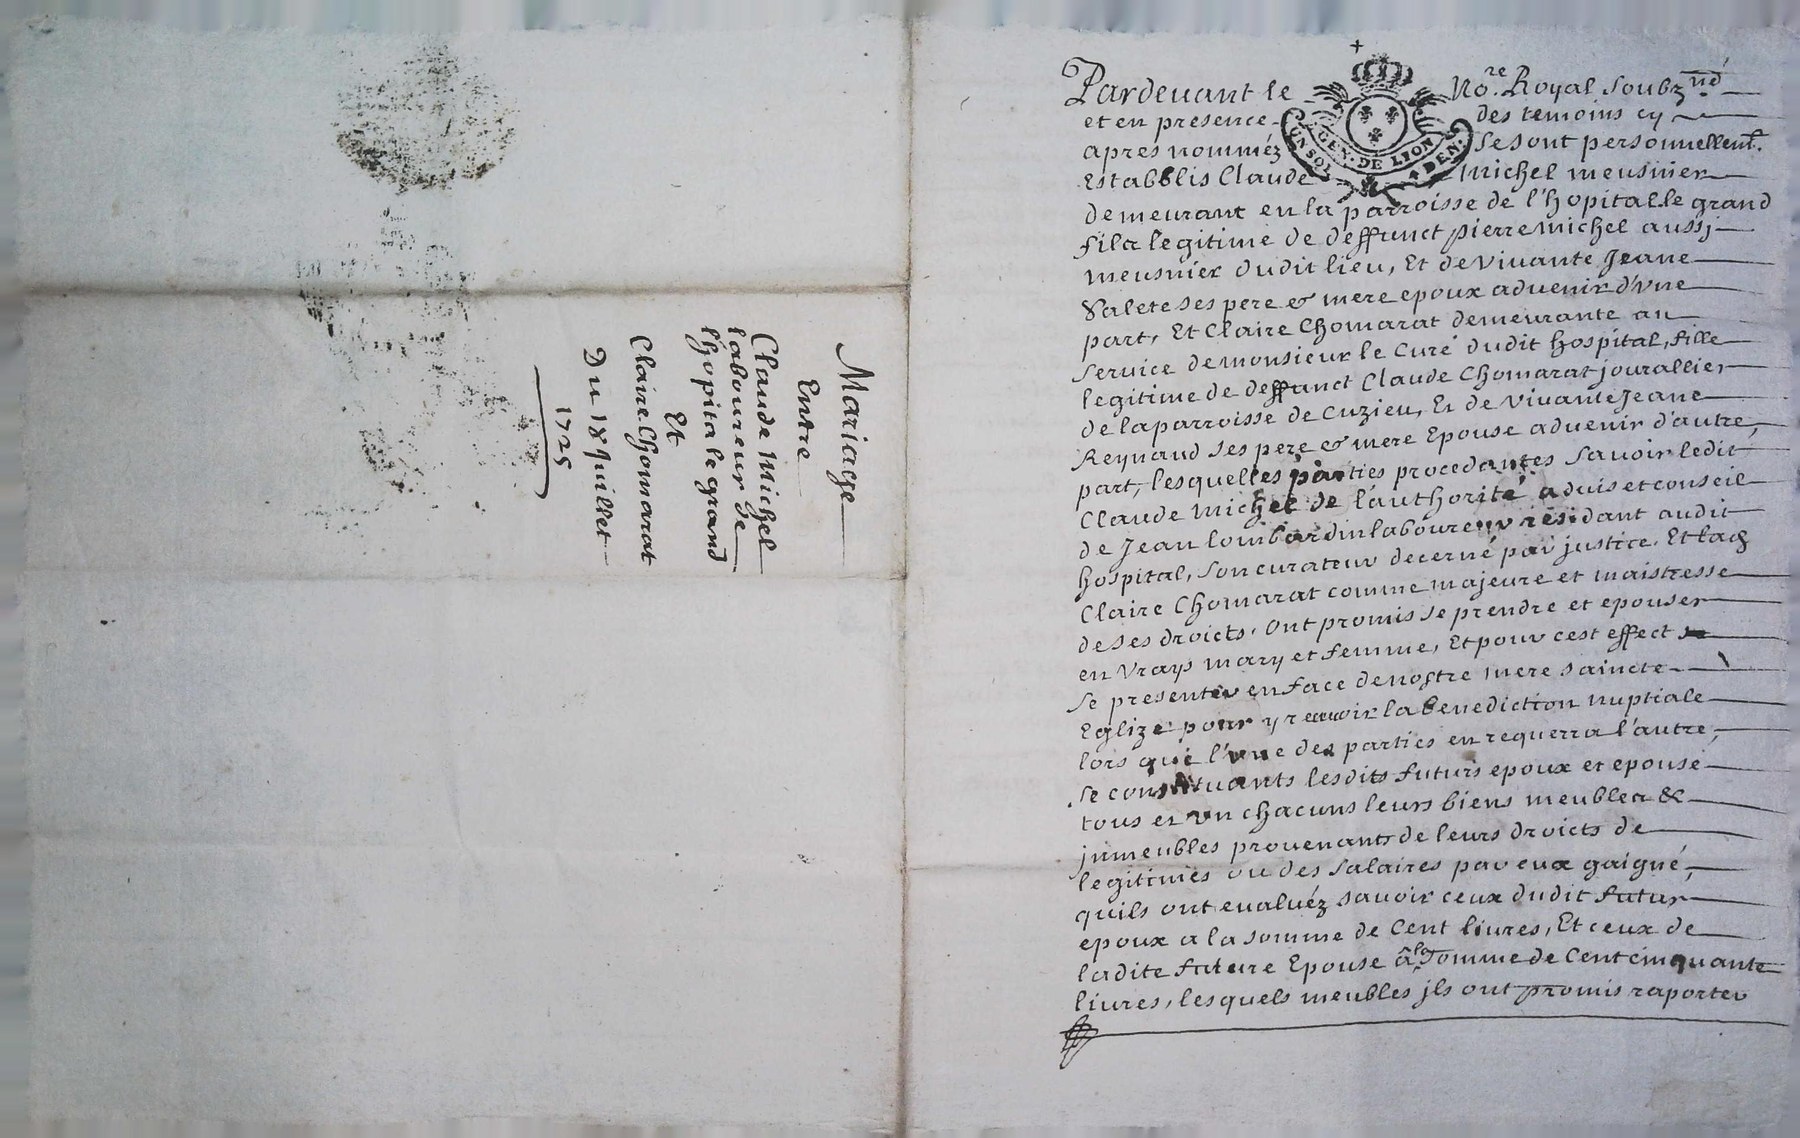 Mariage
Entre
Claude Michel
laboureur de
l'hopital le grand
Et
Claire Chomarat
Du 18 Juillet
1725
Pardevant le No.re Royal soubz.né
et en presence des temoins cy
apres nomméz se sont personnellem.t
Establis Claude michel meusnier
demeurant en la parroisse de l'hopital le grand
fils legitime de deffunct pierre michel aussj
meusnier dudit lieu, Et de vivante Jeane
Valete ses pere & mere epoux advenir d'vne
part, Et Claire Chomarat demeurante au
service de monsieur le Curé dudit hospital, fille
legitime de deffunct Claude Chomarat jourallier
de la parroisse de Cuzieu, Et de vivante Jeane
Reynaud ses pere & mere Epouse advenir d'autre
part, lesquelles parties procedantes savoir ledit
Claude michel de l'authorité advis et conseil
de Jean lombardin laboureur residant audit
hospital, son curateur decerné par justice. Et lad
Claire Chomarat comme majeure et maistresse
de ses droicts. Ont promis se prendre et epouser
en vrays mary et femme, Et pour cest effect
se presenter en face de nostre mere saincte
Eglize pour y recevoir la benediction nuptiale
lors que l'vne des parties en requerra l'autre,
se constituants lesdits futurs epoux et epouse
tous et vn chacuns leurs biens meubles &
jmmeubles provenants de leurs droicts de
legitimes ou des salaires par eux gaigné,
quils ont evaluéz savoir ceux dudit futur
epoux a la somme de Cent livres, Et ceux de
ladite future Epouse â la somme de Cent cinquante
livres, lesquels meubles jls ont promis raporter
GEN. DE LION